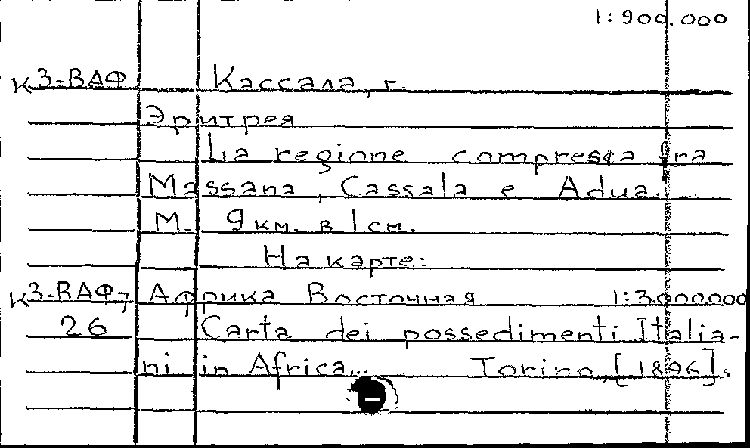 1:900.000
К3-ВАФ Кассала, г.
Эритрея
La regione compresa fra
Massana, Cassala e Adua...
М. 9 км. в 1 см.
На карте:
К3-ВАФ, Африка Восточная 1:3.000.000
26 Carta dei possedimenti Italia-
ni in Africa... Torino, [1896].